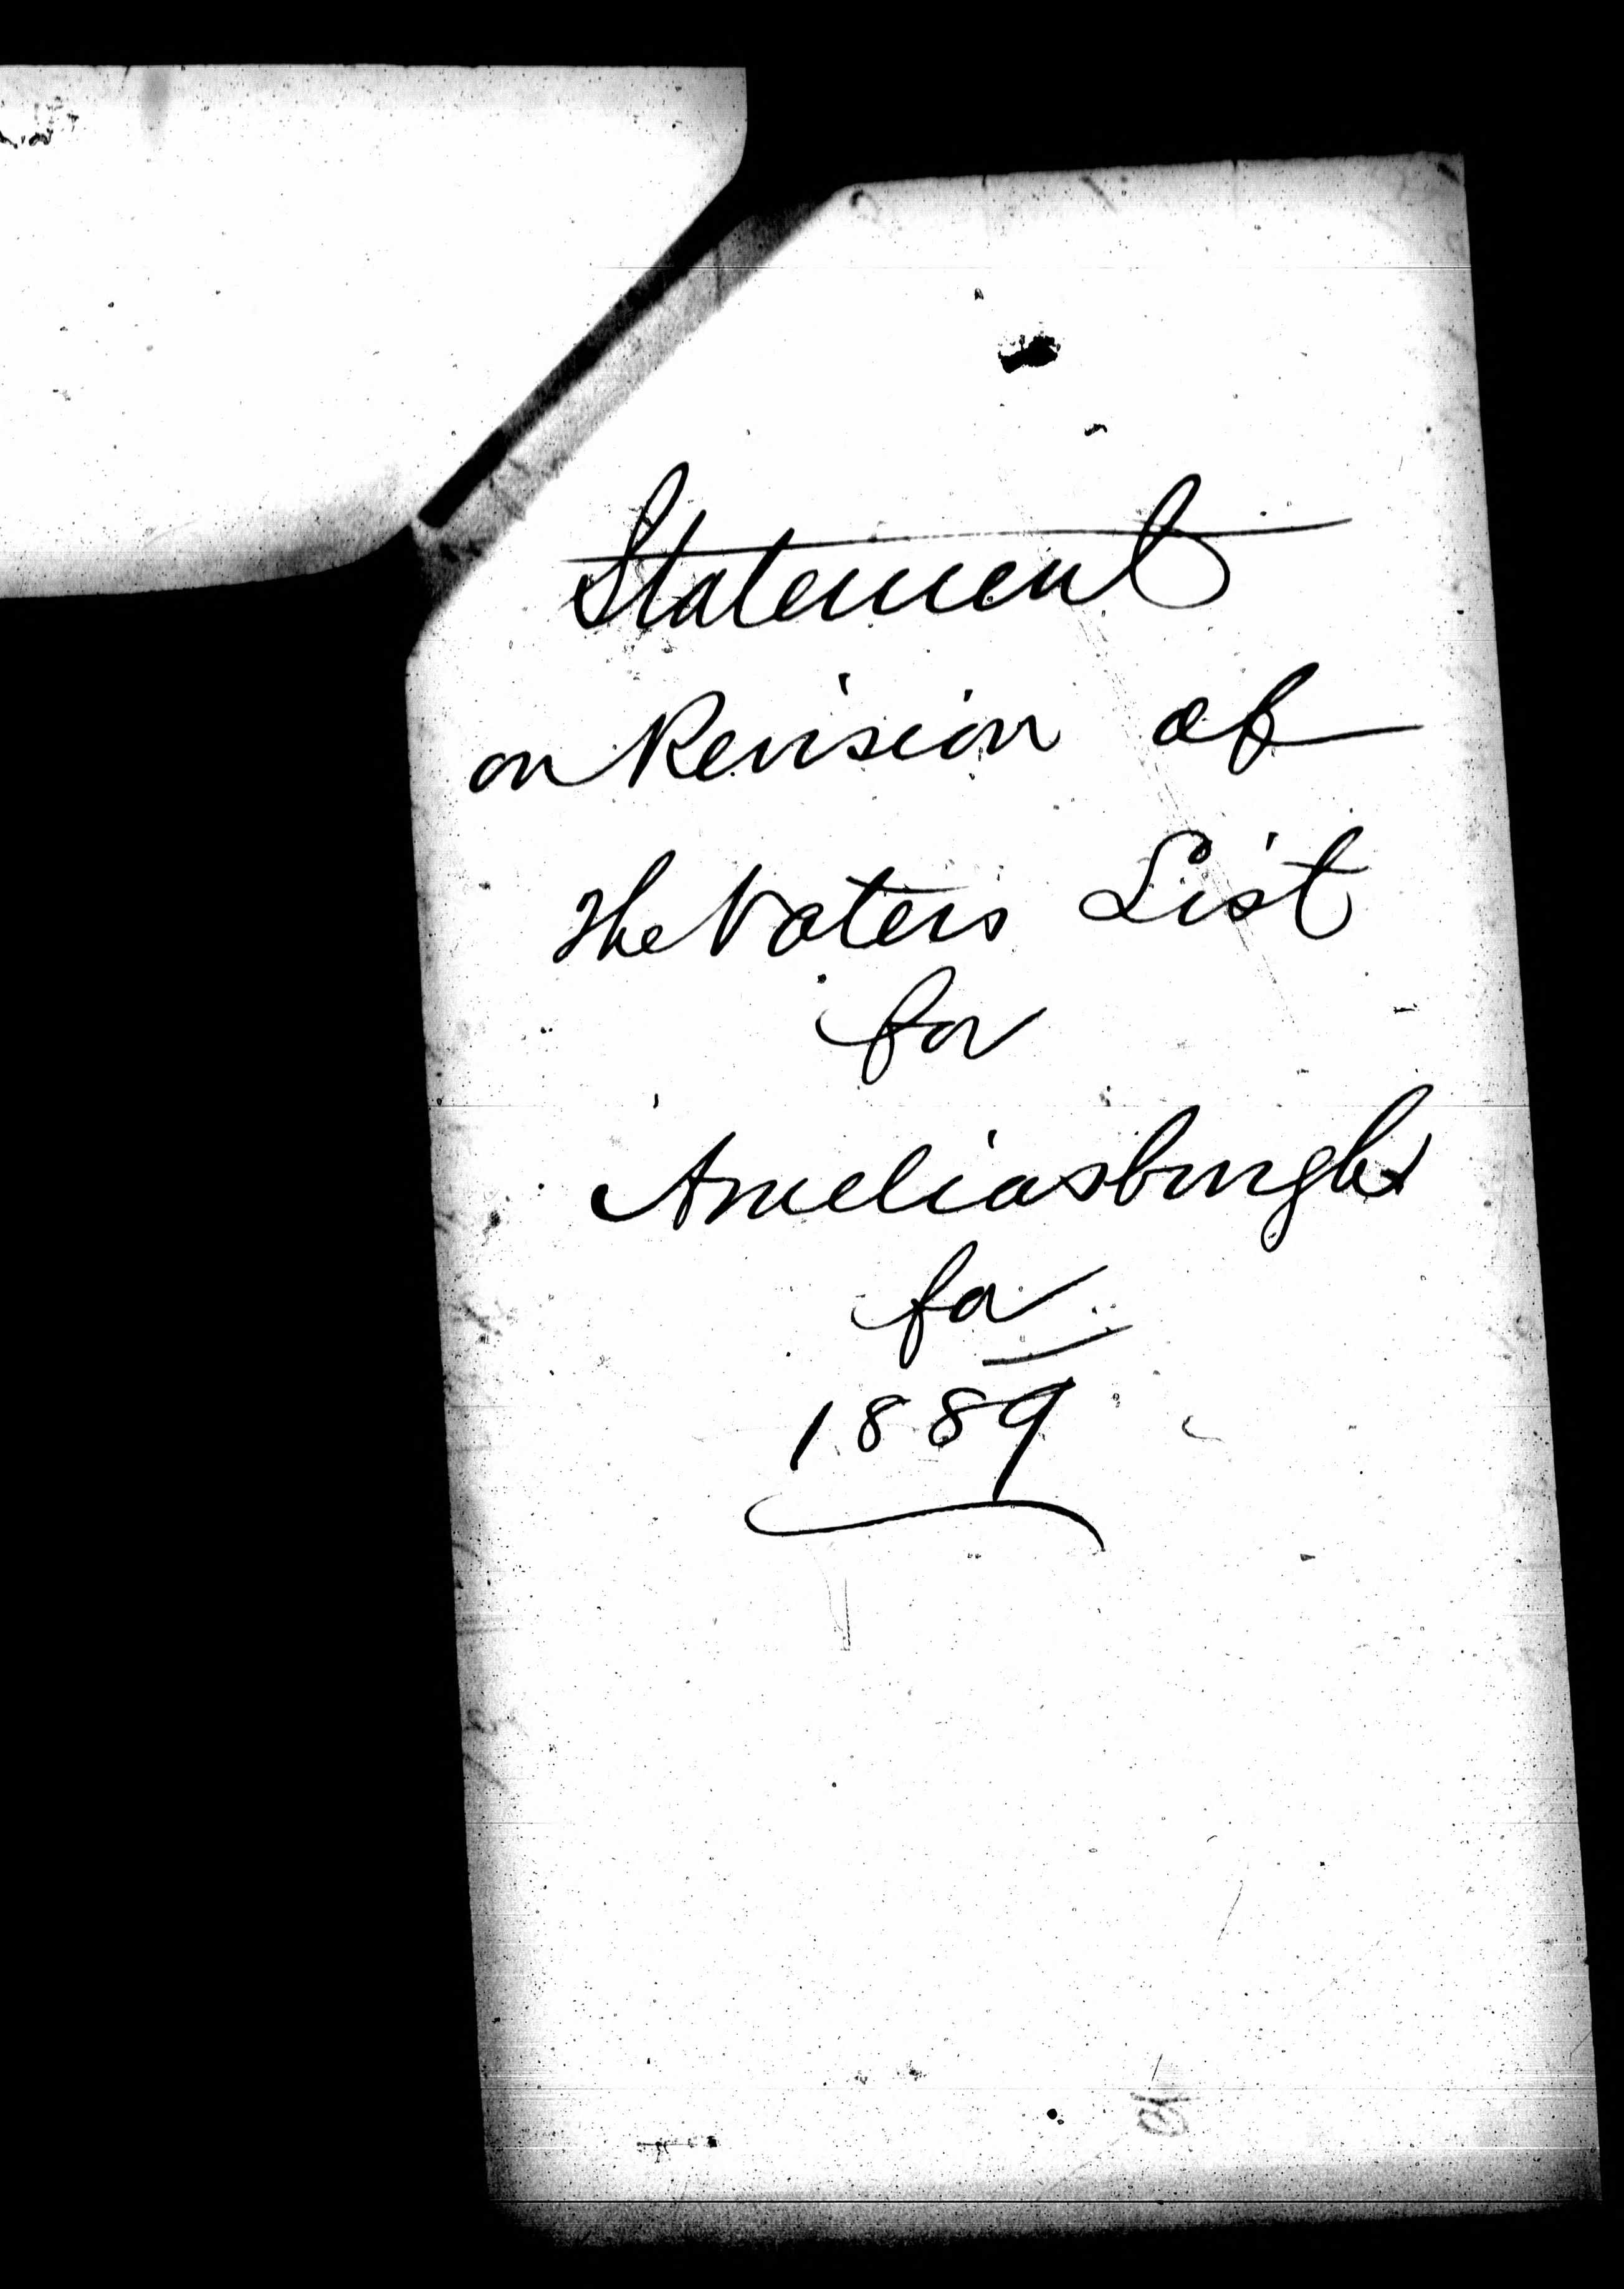 Statement
on Revision of
the Voters List
for
Ameliasburgh
for
1889